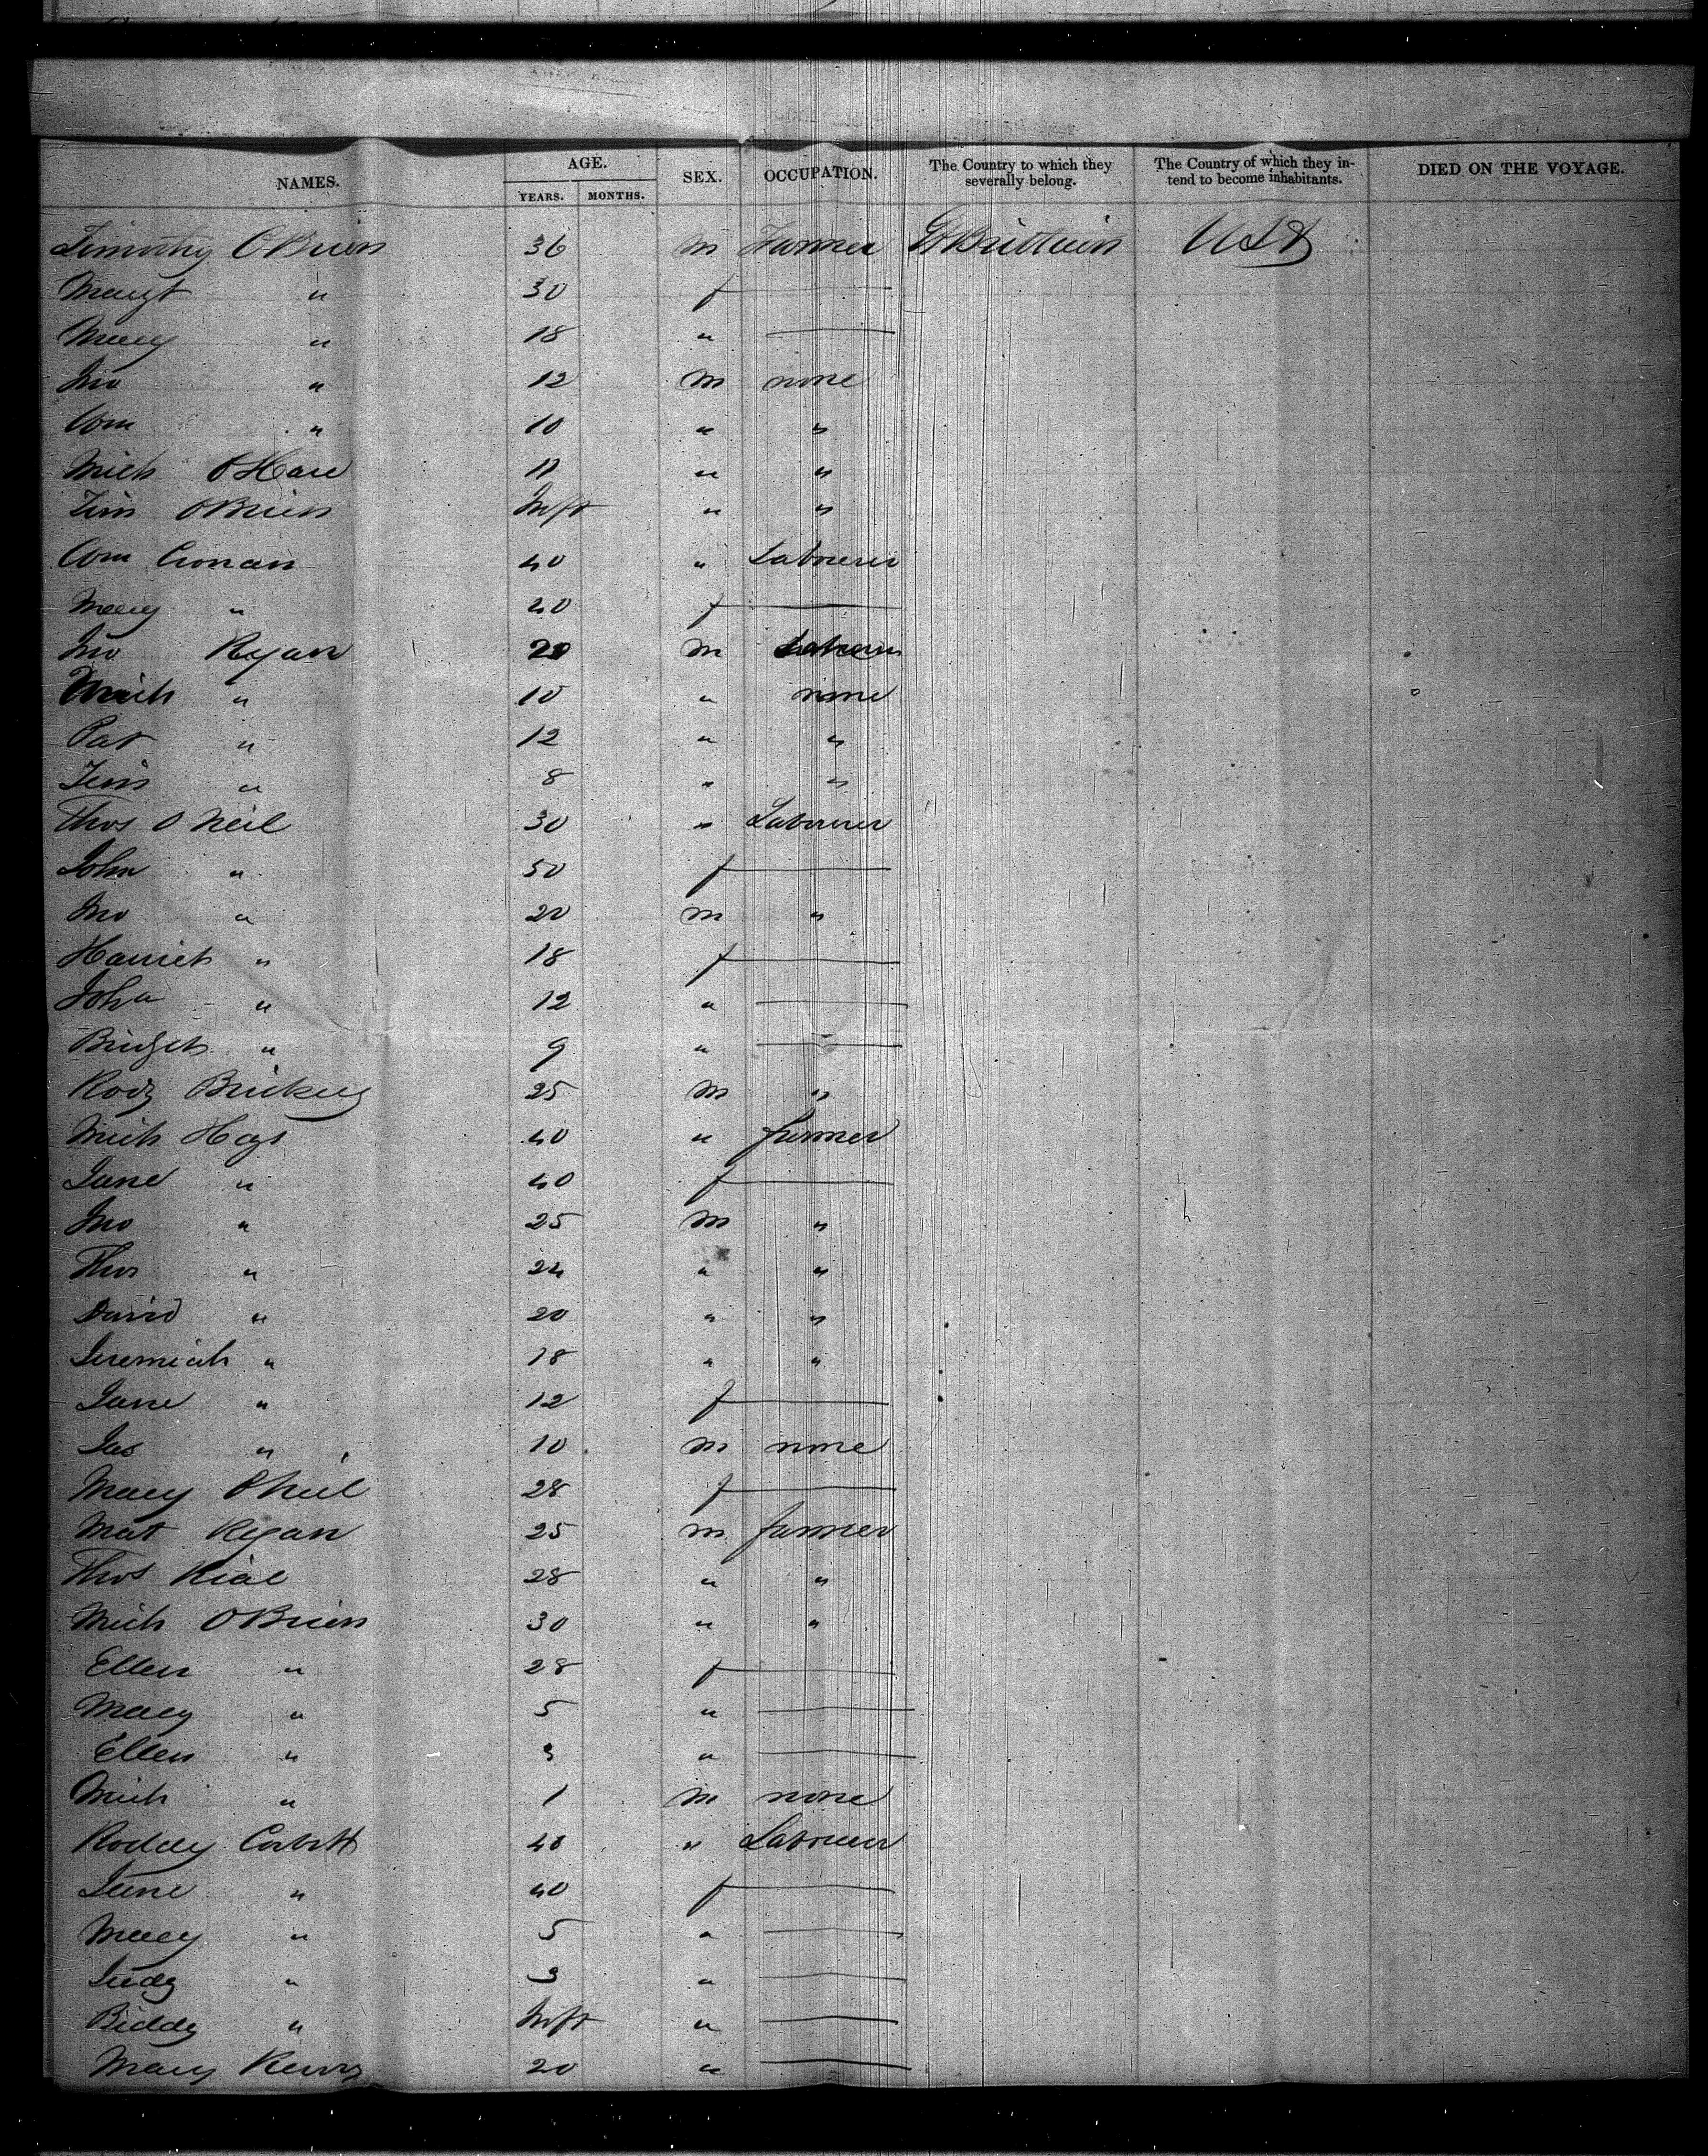 NAMES. AGE. SEX. OCCUPATION. The Country to which they severally belong. The Country of which they intend to become inhabitants. DIED ON THE VOYAGE.
YEARS. MONTHS.
Timothy OBrien 36 m Farmer Gt Brittain USA
Margt " 30 f
Mary " 18 "
Jno " 12 m none
Wm " 10 " "
Mich OHare 11 " "
Tim OBrien Inft " "
Wm Cronan 40 " Labourer
Mary " 20 f
Jno Ryan 20 m Labourer
Mich " 10 " none
Pat " 12 " "
Tim " 8 " "
Thos O Neil 30 " Labourer
John " 50 f
Jno " 20 m "
Harriet " 18 f
Joha " 12 "
Bridget " 9 "
Rody Brickey 25 m "
Mich Hogt 40 " farmer
Jane " 40 f
Jno " 25 m "
Thos " 24 " "
David " 20 " "
Jeremiah " 18 " "
Jane " 12 f
Jas " 10 m none
Mary ONeil 28 f
Mat Ryan 25 m farmer
Thos Rial 28 " "
Mich OBrien 30 " "
Ellen " 28 f
Mary " 5 "
Ellen " 3 "
Mich " 1 m none
Roddy Corbitt 40 " Labourer
Jane " 40 f
Mary " 5 "
Judy " 3 "
Biddy " Inft "
Mary 20 "